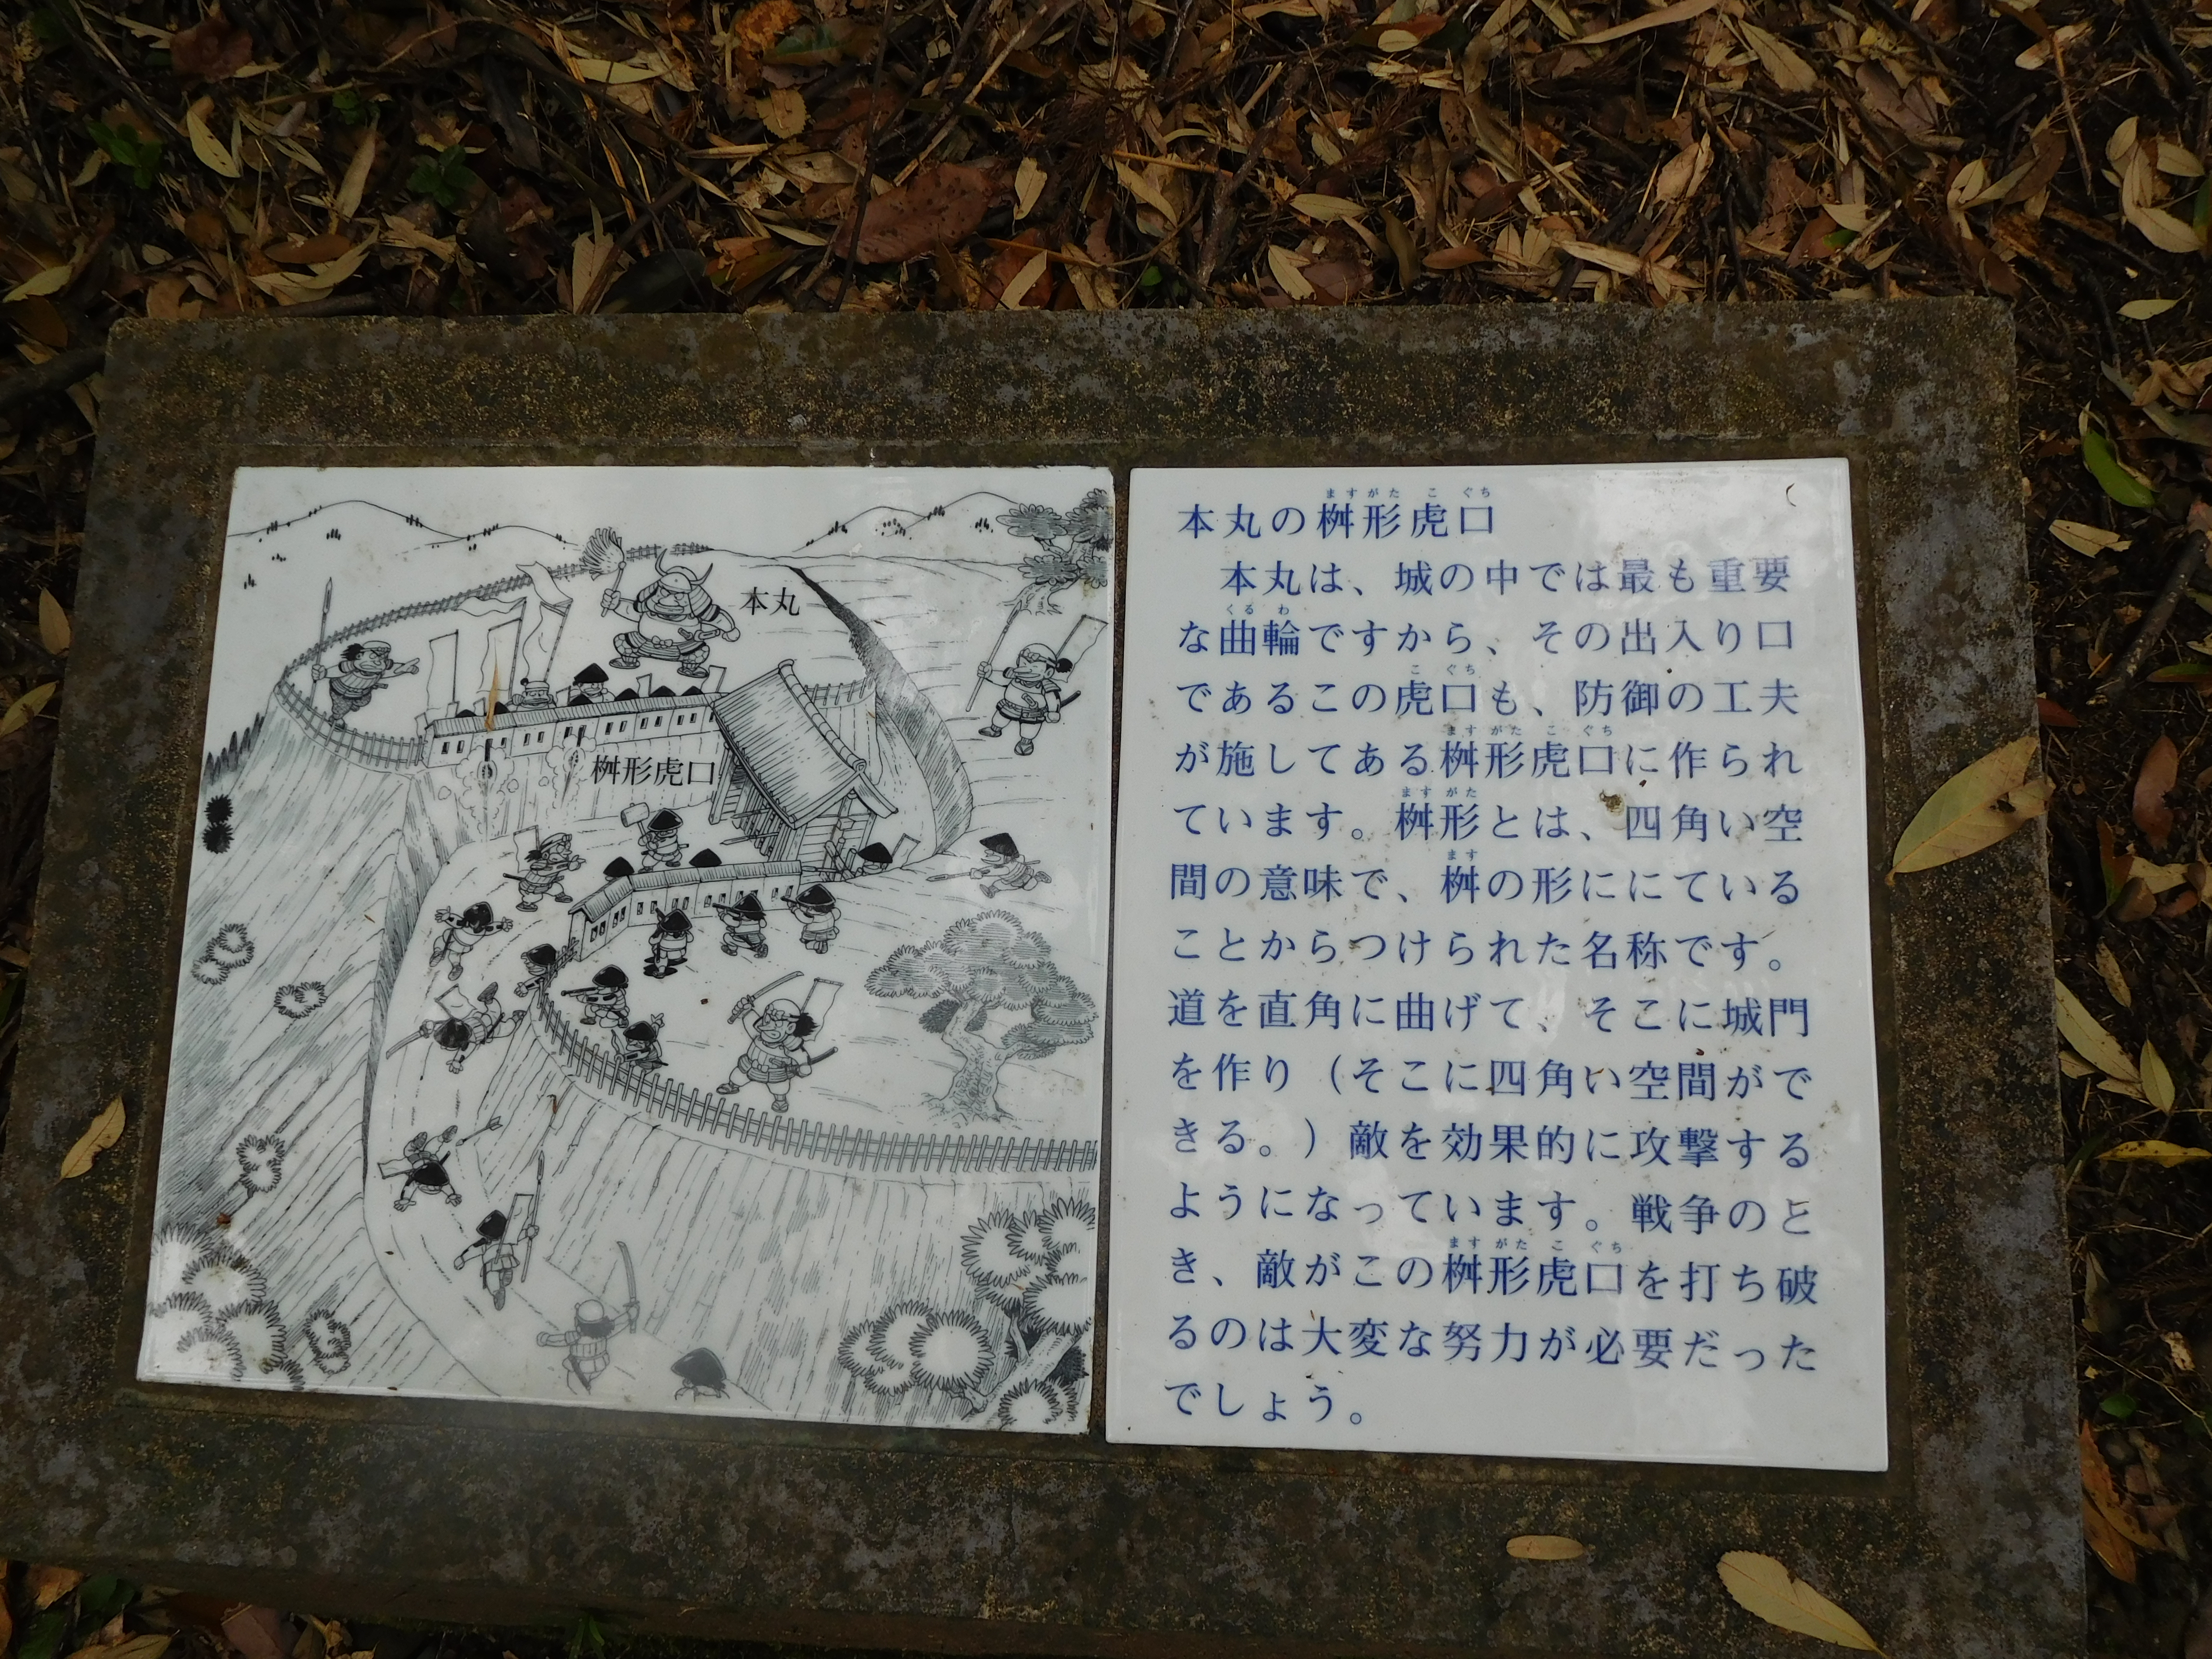 本丸
桝形虎口
本丸の桝形虎口
本丸は、城の中では最も重要
な曲輪ですから、その出入り口
であるこの虎口も、防御の工夫
が施してある桝形虎口に作られ
ています。桝形とは、四角い空
間の意味で、桝の形ににている
ことからつけられた名称です。
道を直角に曲げて、そこに城門
を作り（そこに四角い空間がで
きる。）敵を効果的に攻撃する
ようになっています。戦争のと
き、敵がこの桝形虎口を打ち破
るのは大変な努力が必要だった
でしょう。